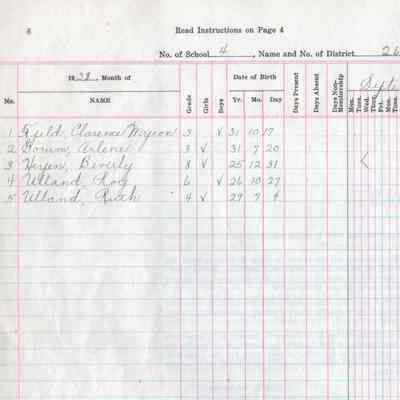 6 Read Instructions on Page 4
No. of School 4, Name and No. of District 26
1938 Month of Date of Birth Days Present Days Absent Days Non-Membership Sept
No. NAME Grade Girls Boys Yr. Mo. Day Mon. Tues. Wed. Thur. Fri. Mon. Tues.
1 Field, Clarence Myron 3 √ 31 10 17
2 Arlene 3 √ 31 7 20
3 Beverly 8 √ 25 12 31
4 Ulland, Roy 6 √ 26 10 27
5 Ulland, Ruth 4 √ 29 7 9